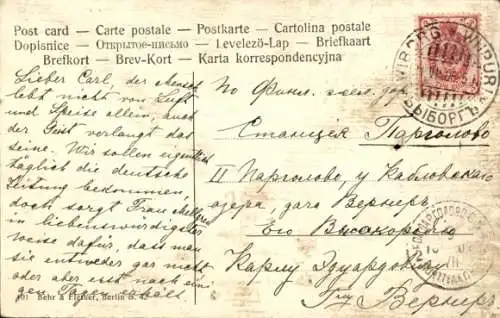 Post card — Carte postale — Postkarte — Cartolina postale
Dopisnice — Открытое письмо — Levelező-Lap — Briefkaart
Brefkort — Brev-Kort — Karta korrespondencyjna
WIBORG WIIPURI
ВЫБОРГЪ
Lieber Carl, der Mensch
lebt nicht von Luft
und Speise allein, auch
der Geist verlangt das
seine. Wir sollen eigentlich
täglich die deutsche
Zeitung bekommen,
doch sorgt Frau
in liebenswürdiger
Weise dafür, dass man
sie entweder gar nicht
oder aber erst nach
gen Tagen erhält.
По Финл. жел. дор.
Станція Парголово
II Парголово, у Кабловскаго
озера, дача Вернеръ.
Его Высокородію
Карлу Эдуардовичу
Гну Вернеръ
101 Behr & Berlin S. 42.